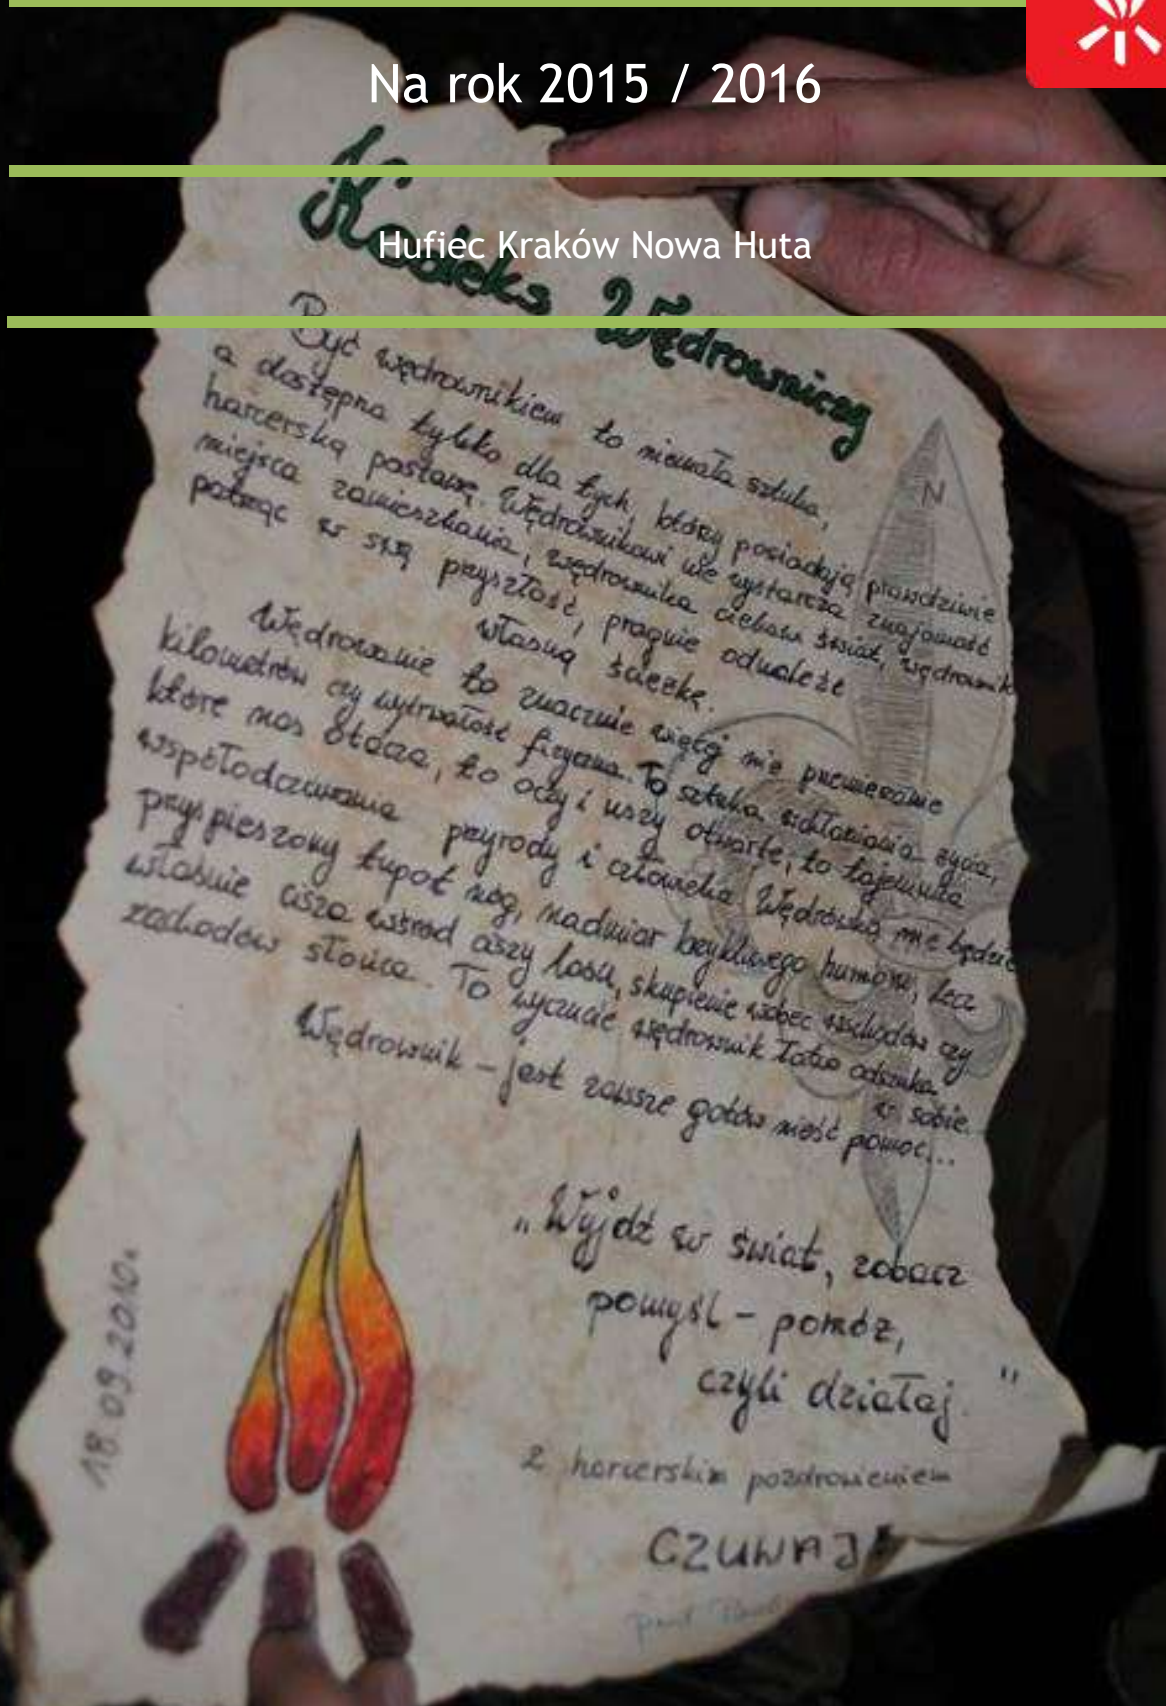 Na rok 2015 / 2016
Hufiec Kraków Nowa Huta
Kodeks Wędrowniczy
Być wędrownikiem to niemała sztuka,
a dostępna tylko dla tych, którzy posiadają prawdziwie
harcerską postawę. Wędrownikowi nie wystarcza znajomość
miejsca zamieszkania, wędrownika ciekawi świat, wędrownik
patrząc w swą przyszłość, pragnie odnaleźć
własną ścieżkę.
Wędrowanie to znacznie więcej nie przemierzanie
kilometrów czy wytrwałość fizyczna. To sztuka wchłaniania życia,
które nas otacza, to oczy i uszy otwarte, to tajemnica
współodczuwania przyrody i człowieka. Wędrówką nie będzie
przyspieszony tupot nóg, nadmiar krzykliwego humoru, lecz
właśnie cisza wśród ciszy lasu, skupienie wobec wschodów czy
zachodów słońca. To wyczucie wędrownik łatwo odszuka
w sobie.
Wędrownik - jest zawsze gotów nieść pomoc...
"Wyjdź w świat, zobacz
pomyśl - pomóż,
czyli działaj. "
Z harcerskim pozdrowieniem
CZUWAJ!
18.09.2010.
N